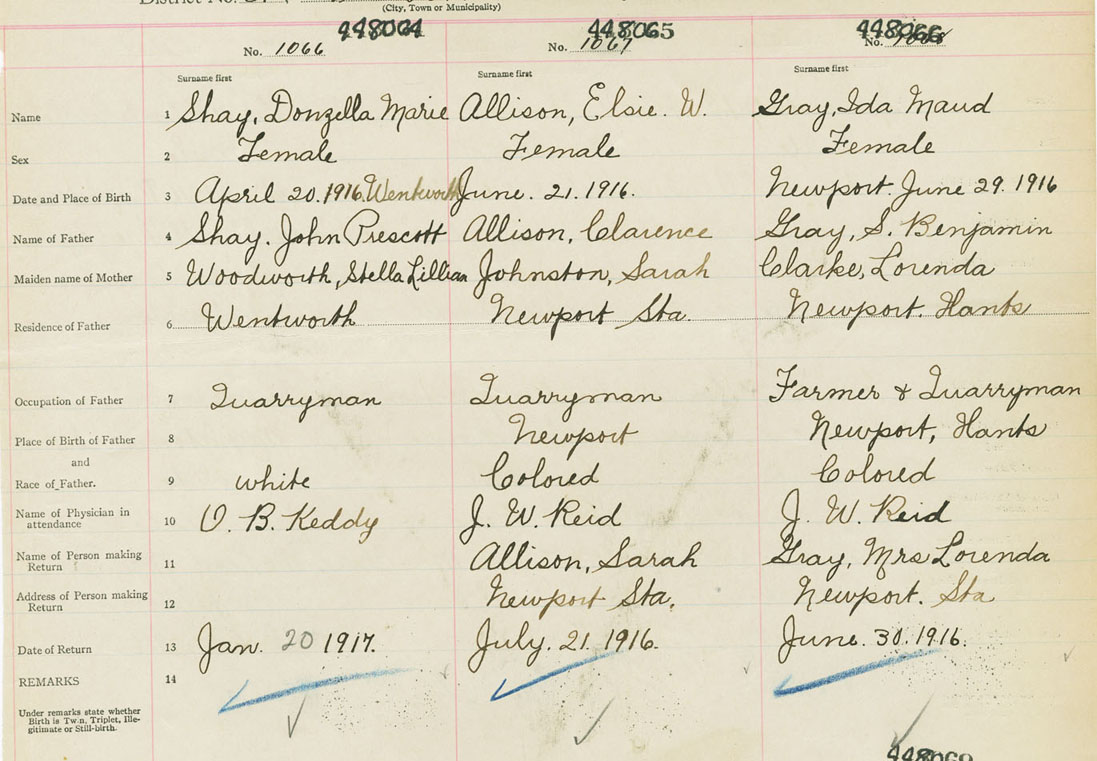 District No.
(City, Town or Municipality)
448064 448065 448066
No. 1066 No. 1067 No.
Surname first Surname first Surname first
Name 1 Shay, Donzella Marie Allison, Elsie. W. Gray, Ida Maud
Sex 2 Female Female Female
Date and Place of Birth 3 April 20. 1916. Wentworth June. 21. 1916. Newport. June 29. 1916
Name of Father 4 Shay. John Prescott Allison, Clarence Gray, S. Benjamin
Maiden name of Mother 5 Woodworth, Stella Lillian Johnston, Sarah Clarke, Lorenda
Residence of Father 6 Wentworth Newport Sta. Newport. Hants
Occupation of Father 7 Quarryman Quarryman Farmer & Quarryman
Place of Birth of Father 8 Newport Newport, Hants
and
Race of Father. 9 white Colored Colored
Name of Physician in
attendance 10 O. B. Keddy J. W. Reid J. W. Reid
Name of Person making
Return 11 Allison, Sarah Gray, Mrs Lorenda
Address of Person making
Return 12 Newport Sta. Newport. Sta
Date of Return 13 Jan. 20 1917. July. 21. 1916. June. 30. 1916.
REMARKS 14
Under remarks state whether
Birth is Twin, Triplet, Ille-
gitimate or Still-birth.